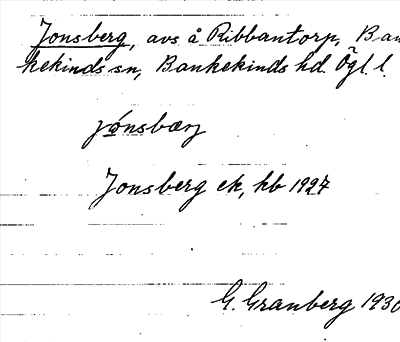 Jonsberg, avs å Ribbantorp, Ban
kekinds sn, Bankekinds hd. Ögl. l.
jónsbærj
Jonsberg ek, hb 1927
G. Granberg 1930